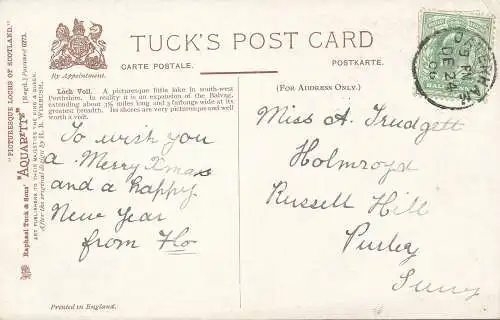 TUCK'S POST CARD
CARTE POSTALE.
POSTKARTE.
By Appointment.
(FOR ADDRESS ONLY.)
Loch Voil. A picturesque little lake in south-west
Perthshire. In reality it is an expansion of the Balvag,
extending about 3½ miles long and 3 furlongs wide at its
greatest breadth. Its shores are very picturesque and well
worth a visit.
To wish you
a Merry Xmas
and a happy
New Year
from Flo
Miss A. Trudgett
Holmroyd
Russell Hill
Purley
Surrey
"PICTURESQUE LOCHS OF SCOTLAND."
Raphael Tuck & Sons' "AQUARETTE" [Regd.] Postcard
ART PUBLISHERS TO THEIR MAJESTIES THE KING & QUEEN.
After the original design by H. B. WIMBUSH.
Printed in England.
HALF
DE 24